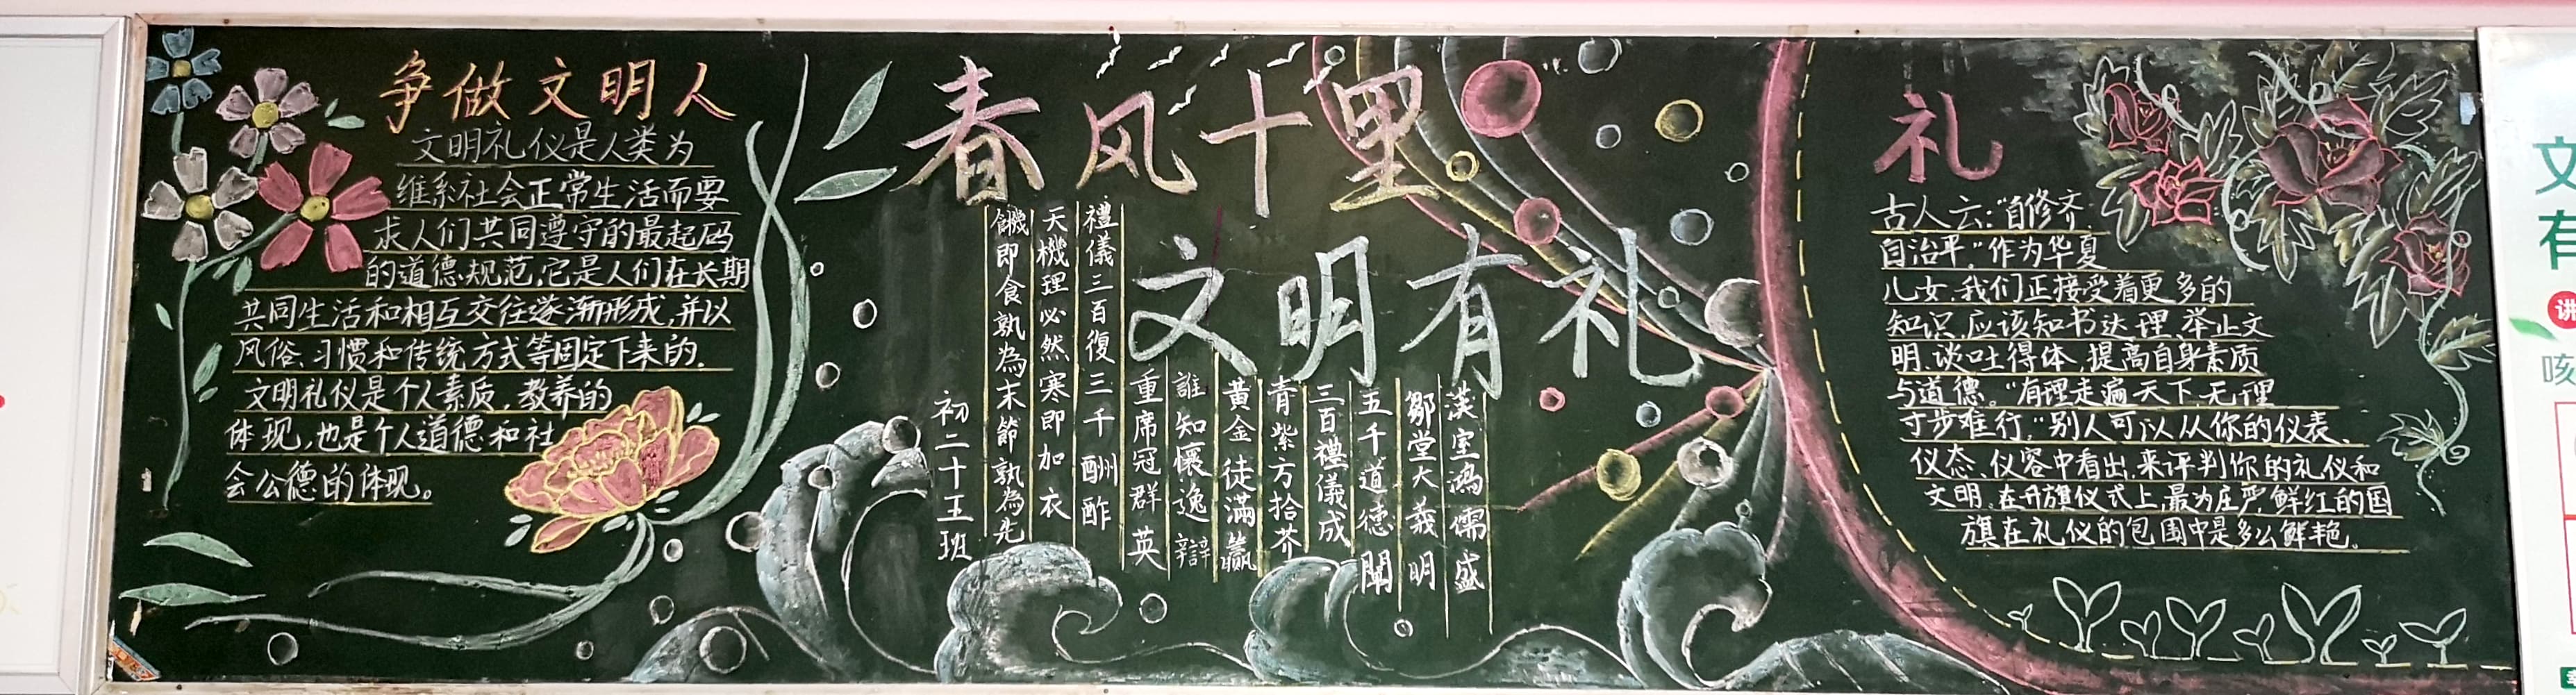 争做文明人
文明礼仪是人类为
维系社会正常生活而要
求人们共同遵守的最起码
的道德规范,它是人们在长期
共同生活和相互交往逐渐形成,并以
风俗、习惯和传统方式等固定下来的.
文明礼仪是个人素质,教养的
体现,也是个人道德和社
会公德的体现。
春风十里
文明有礼
漢室鴻儒盛
鄒堂大義明
五千道德闡
三百禮儀成
青紫方拾芥
黃金徒滿籯
誰知懷逸辯
重席冠群英
禮儀三百復三千酬酢
天機理必然寒即加衣
饑即食孰為末節孰為先
初二十五班
礼
古人云:"自修齐
自治平,"作为华夏
儿女,我们正接受着更多的
知识,应该知书达理,举止文
明,谈吐得体,提高自身素质
与道德。"有理走遍天下,无理
寸步难行,"别人可以从你的仪表、
仪态、仪容中看出,来评判你的礼仪和
文明,在升旗仪式上,最为庄严,鲜红的国
旗在礼仪的包围中是多么鲜艳。
文
有
讲
咳